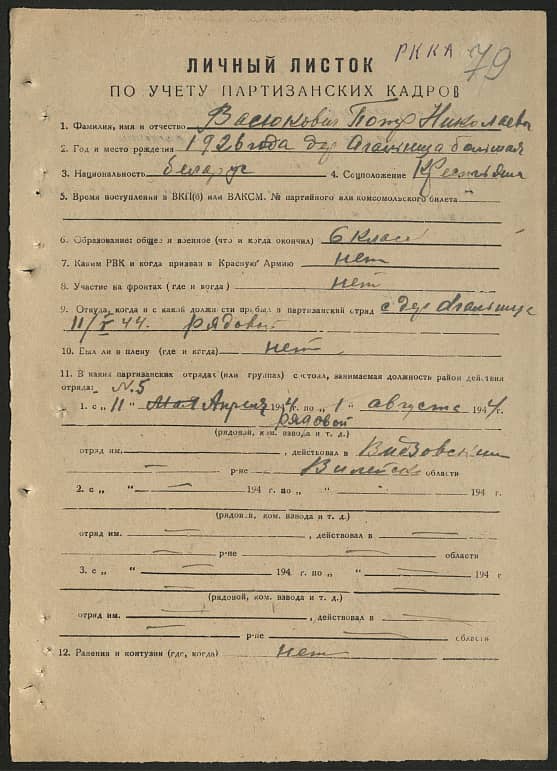 РККА 79
ЛИЧНЫЙ ЛИСТОК
ПО УЧЕТУ ПАРТИЗАНСКИХ КАДРОВ
1. Фамилия, имя и отчество Васюкович Петр Николаевич
2. Год и место рождения 1926 года дер большая
3. Национальность беларус 4. Соцположение
5. Время поступления в ВКП(б) или ВЛКСМ. № партийного или комсомольского билета
6. Образование: общее и военное (что и когда окончил) 6 класс
7. Каким РВК и когда призван в Красную Армию нет
8. Участие на фронтах (где и когда) нет
9. Откуда, когда и с какой должности прибыл в партизанский отряд с дер
11/V 44. рядовой
10. Был ли в плену (где и когда) нет
11. В каких партизанских отрядах (или группах) состоял, занимаемая должность район действия
отряда: №5
1. с „ 11 “ мая Апреля 1944 г. по „ 1 “ августа 1944 г.
рядовой
(рядовой, ком. взвода и т. д.)
отряд им. , действовал в
р-не Вилейской области
2. с „ “ 194 г. по „ “ 194 г.
(рядовой, ком. взвода и т. д.)
отряд им. , действовал в
р-не области
3. с „ “ 194 г. по „ “ 194 г
(рядовой, ком. взвода и т. д.)
отряд им. , действовал в
р-не области
12. Ранения и контузии (где, когда) нет